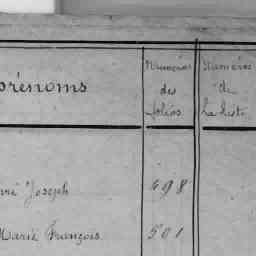 prénoms
Numéros
des
folios
Numéros
de
la liste
Joseph
698
Marie François
501